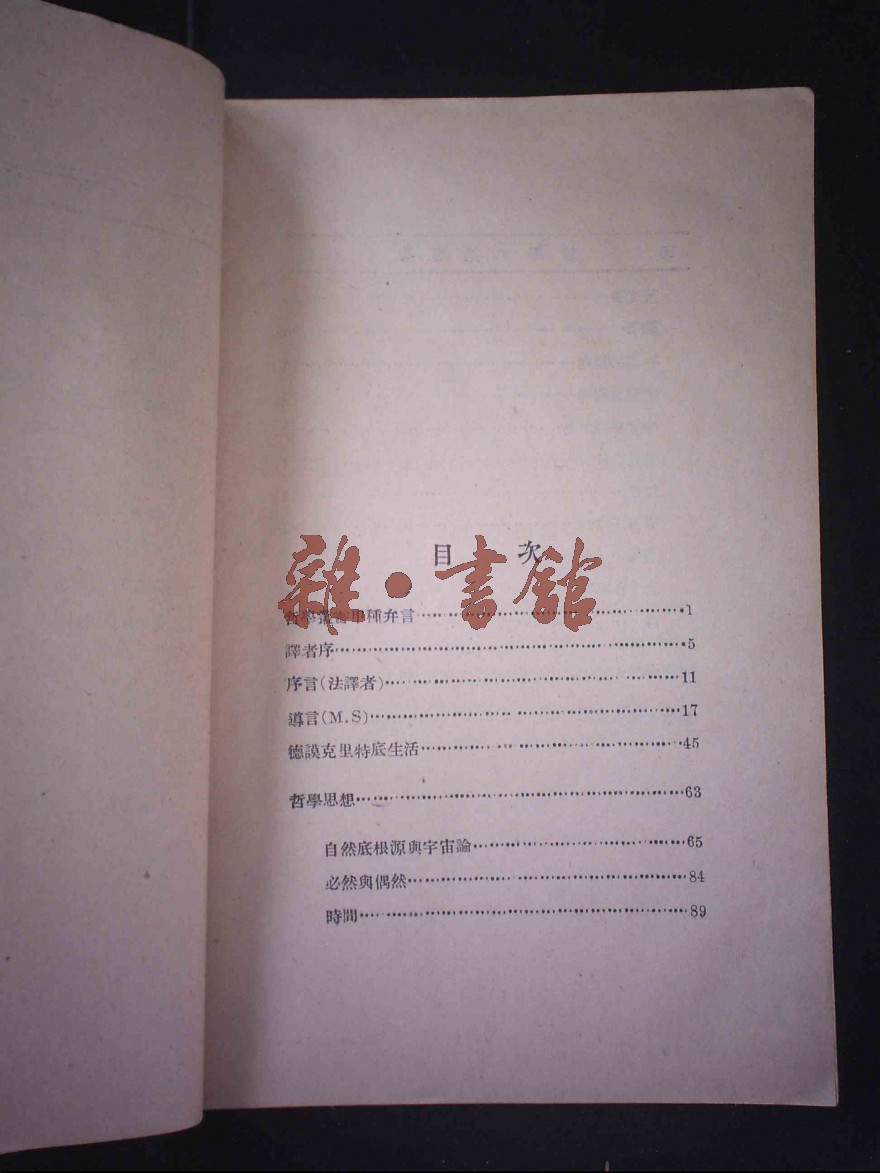 目 次
雜·書館
哲學叢書甲種弁言……1
譯者序……5
序言(法譯者)……11
導言(M.S)……17
德謨克里特底生活……45
哲學思想……63
自然底根源與宇宙論……65
必然與偶然……84
時間……89